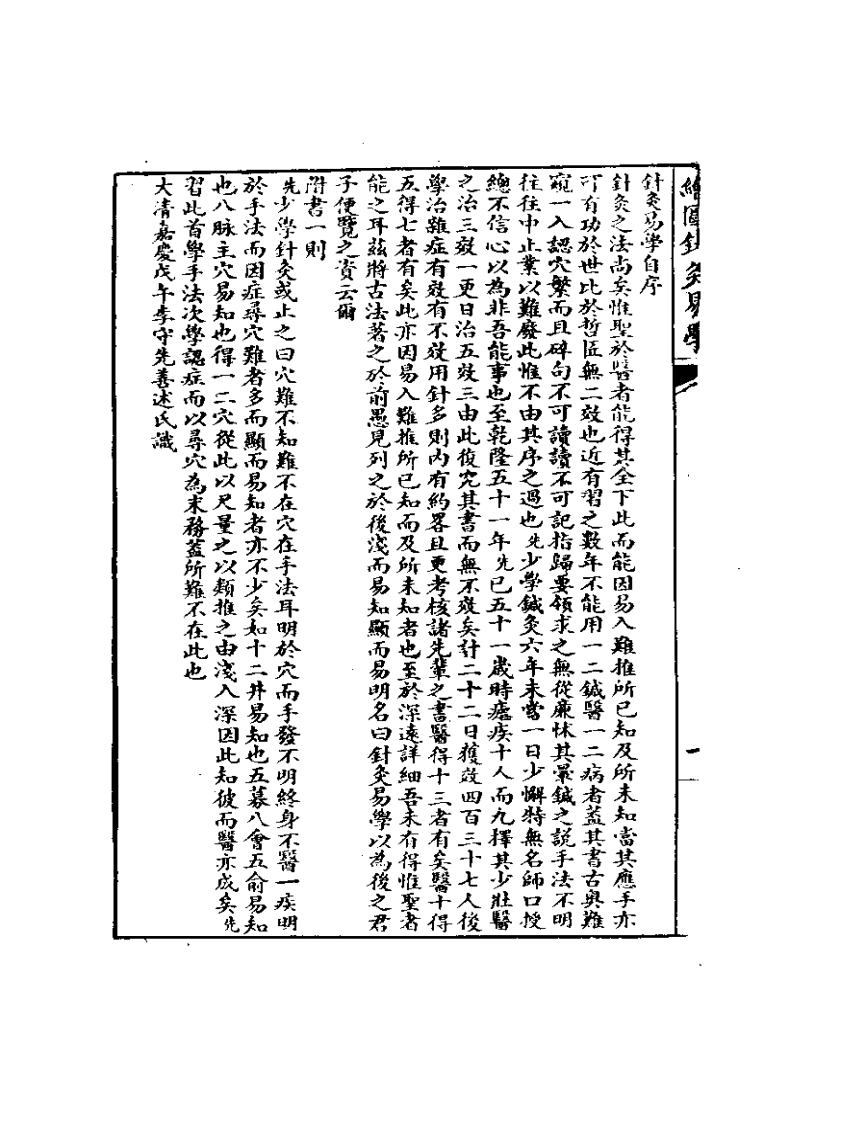 繪圖針灸易學
一
針灸易學自序
針灸之法尚矣惟聖於醫者能得其全下此而能因易入難推所已知及所未知當其應手亦
可有功於世比於哲匠無二效也近有習之數年不能用一二鍼醫一二病者蓋其書古奧難
窺一入認穴繁而且碎句不可讀讀不可記指歸要領求之無從廉怵其暈鍼之説手法不明
往往中止業以難廢此惟不由其序之過也先少學鍼灸六年未嘗一日少懈特無名師口授
總不信心以為非吾能事也至乾隆五十一年先已五十一歲時瘧疾十人而九擇其少壯醫
之治三效一更日治五效三由此復究其書而無不效矣計二十二日獲效四百三十七人後
學治雜症有效有不效用針多則內有約畧且更考核諸先輩之書醫得十三者有矣醫十得
五得七者有矣此亦因易入難推所已知而及所未知者也至於深遠詳細吾未有得惟聖者
能之耳茲將古法著之於前愚見列之於後淺而易知顯而易明名曰針灸易學以為後之君
子便覽之資云爾
附書一則
先少學針灸或止之曰穴難不知難不在穴在手法耳明於穴而手發不明終身不醫一疾明
於手法而因症尋穴難者多而顯而易知者亦不少矣如十二井易知也五募八會五俞易知
也八脉主穴易知也得一二穴從此以尺量之以類推之由淺入深因此知彼而醫亦成矣先
習此首學手法次學認症而以尋穴為末務蓋所難不在此也
大清嘉慶戊午李守先善述氏識